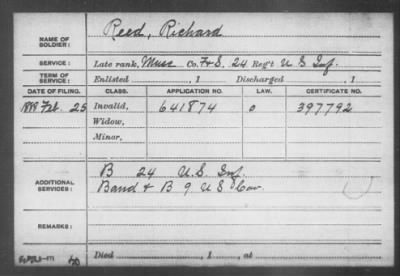 NAME OF SOLDIER: Reed, Richard
SERVICE: Late rank, Musc Co. F&S, 24 Reg't U S Inf.
TERM OF SERVICE: Enlisted , 1 Discharged , 1
DATE OF FILING. CLASS. APPLICATION NO. LAW. CERTIFICATE NO.
1888 Feb. 25 Invalid, 641874 O 397792
Widow,
Minor,
ADDITIONAL SERVICES: B 24 U.S. Inf.
Band & B 9 U S Cav.
REMARKS:
Died , 1 , at